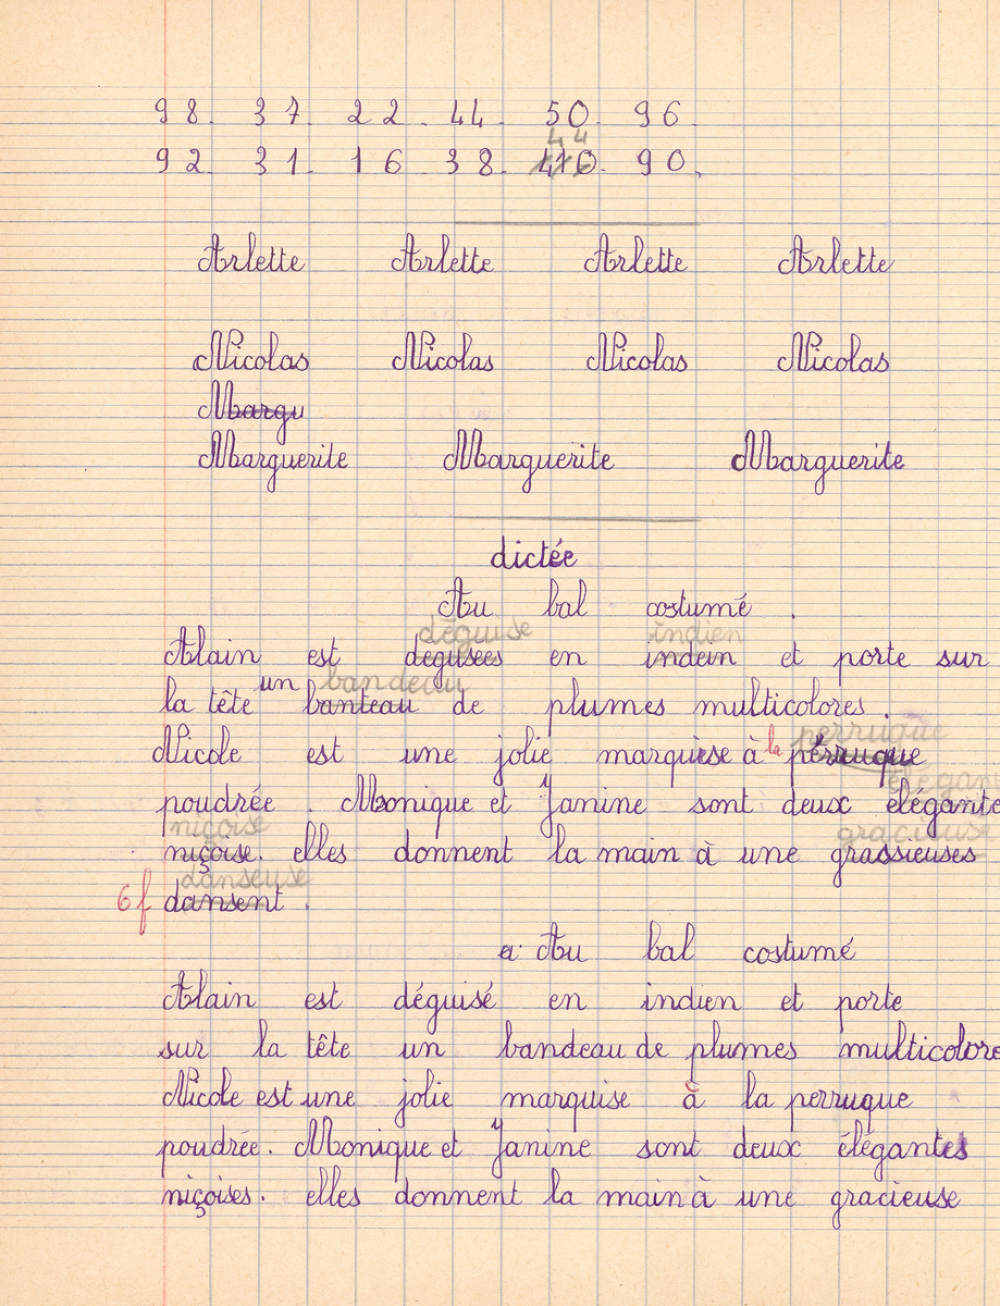 98. 37. 22. 44. 50. 96.
44
92. 31. 16. 38. 40. 90.
Arlette Arlette Arlette Arlette
Nicolas Nicolas Nicolas Nicolas
Margu
Marguerite Marguerite Marguerite
dictée
Au bal costumé.
déguise indien
Alain est degusees en indein et porte sur
un bandeau
la tête banteau de plumes multicolores.
la perruque
Nicole est une jolie marquise à perruque
élégan
poudrée. Monique et Janine sont deux élégante
niçoise gracieuse
niçoise. elles donnent la main à une grassieuses
danseuse
6f dansent.
a Au bal costumé
Alain est déguisé en indien et porte
sur la tête un bandeau de plumes multicolore
Nicole est une jolie marquise à la perruque
poudrée. Monique et Janine sont deux élégantes
niçoises. elles donnent la main à une gracieuse